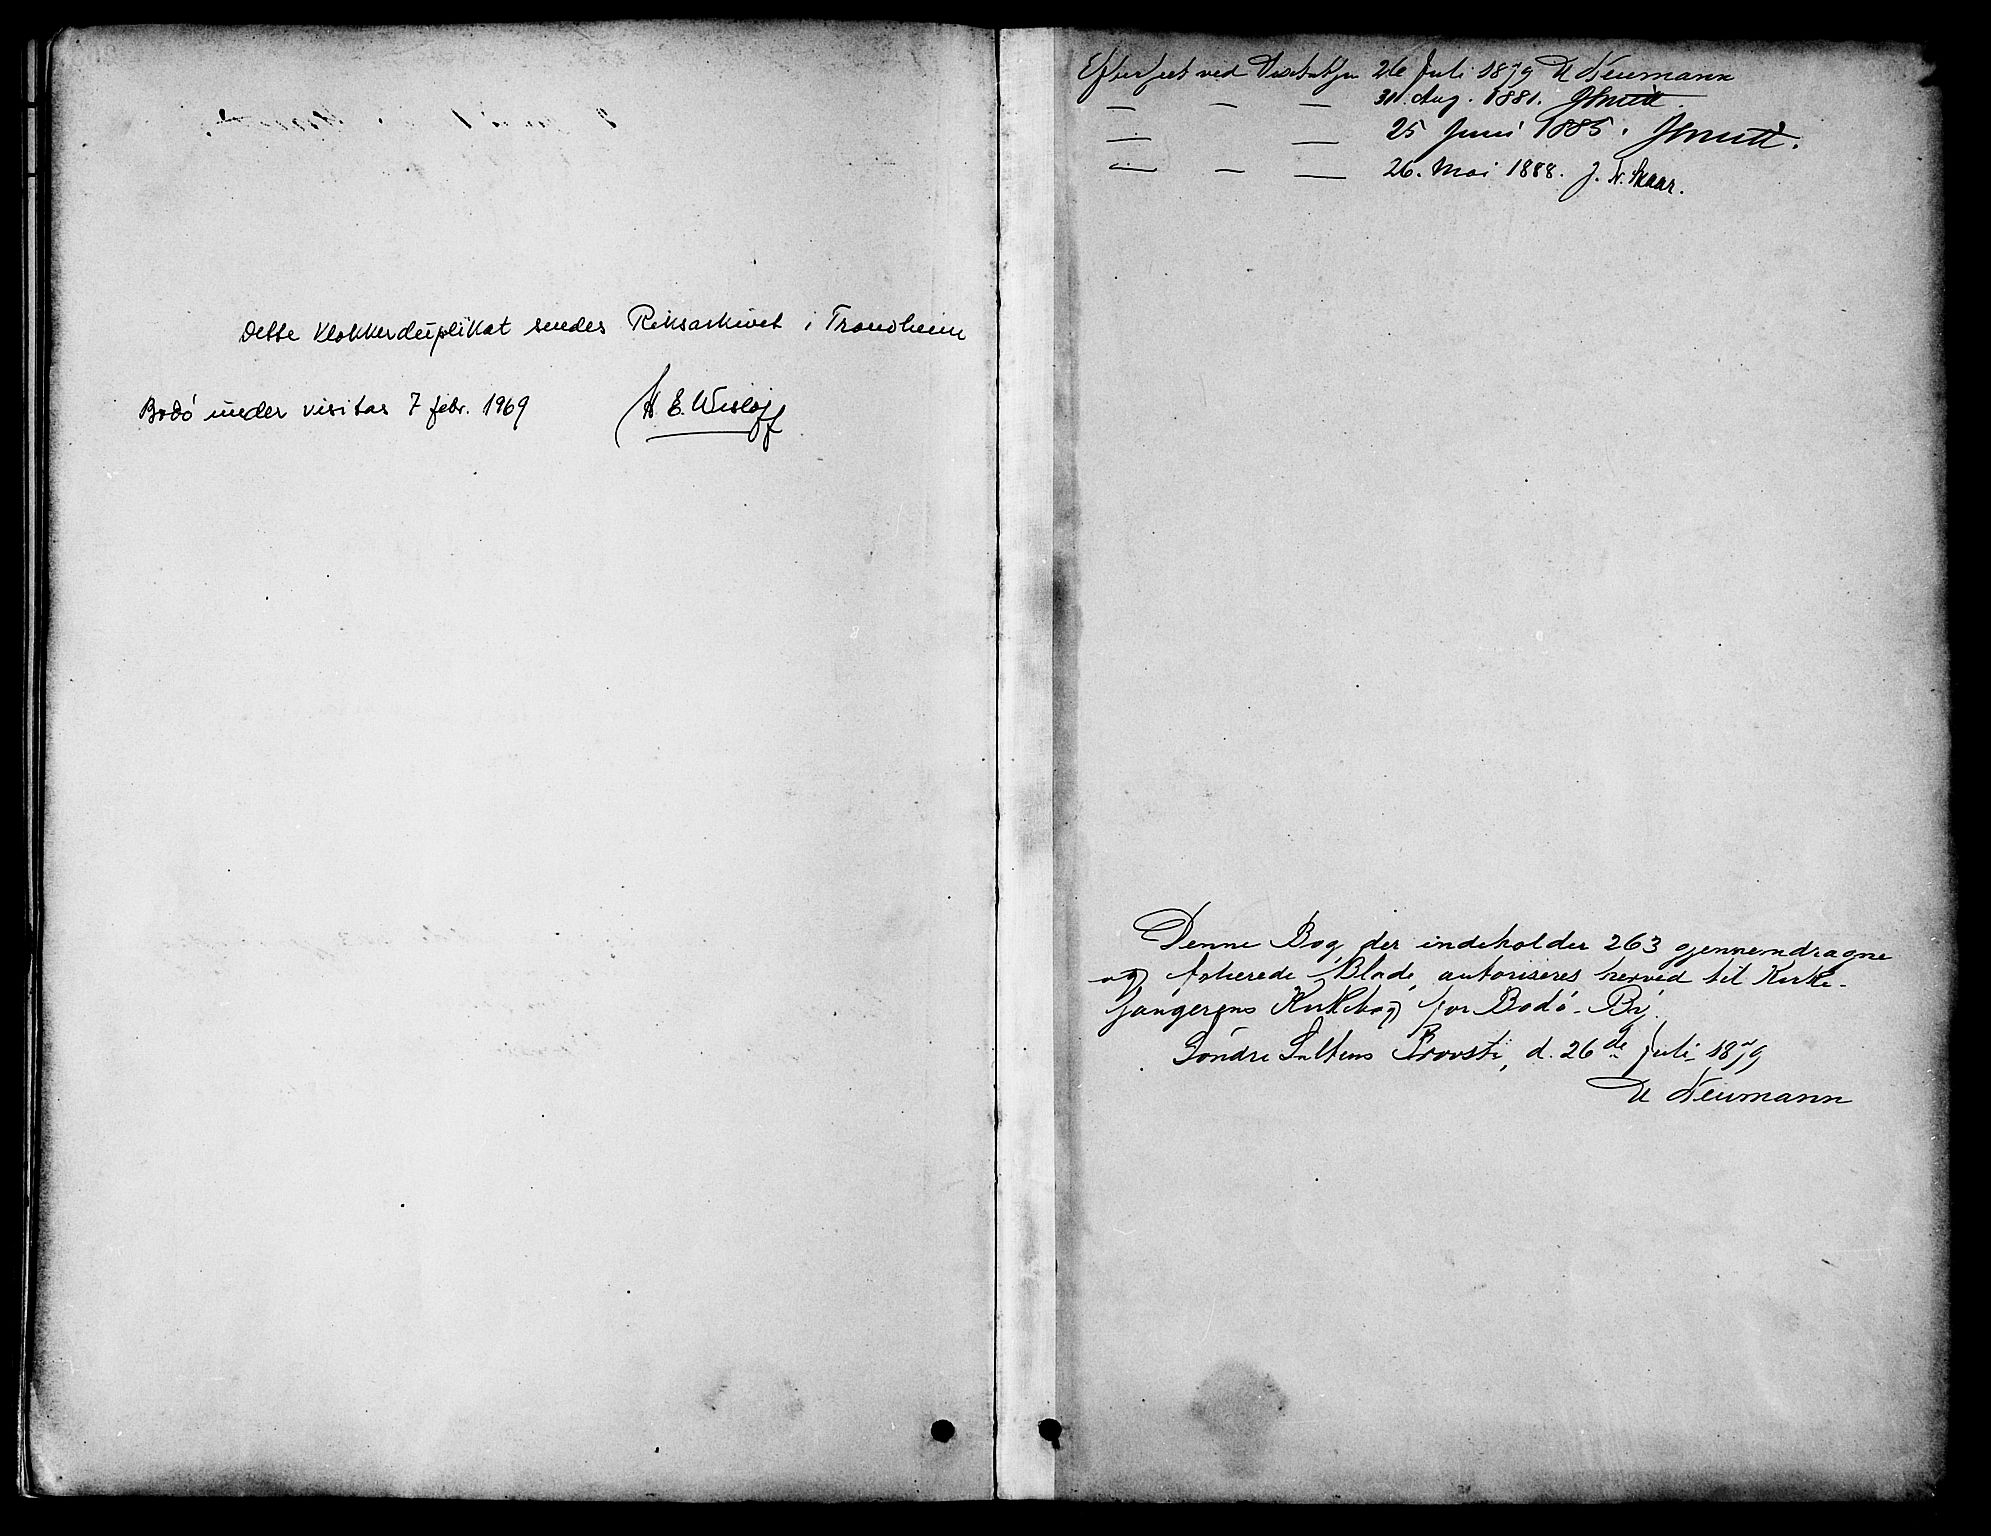 Dette Klokkerduplikat sendes Riksarkivet i Trondheim
Bodó under visitas 7 febr. 1969 H. E. Wisløff
Efterseet ved Visitatsen 26 Juli 1879 N Neumann
— — — 31. Aug. 1881. Smitt.
— — 25 Juni 1885. JSmitt.
— — — 26. Mai 1888. J. N. Skaar.
Denne Bog, der indeholder 263 gjennemdragne
og folierede Blade, autoriseres herved til Kirke-
sangerens Kirkebog for Bodó By.
Sóndre Saltens Provsti, d. 26de Juli 1879
N Neumann